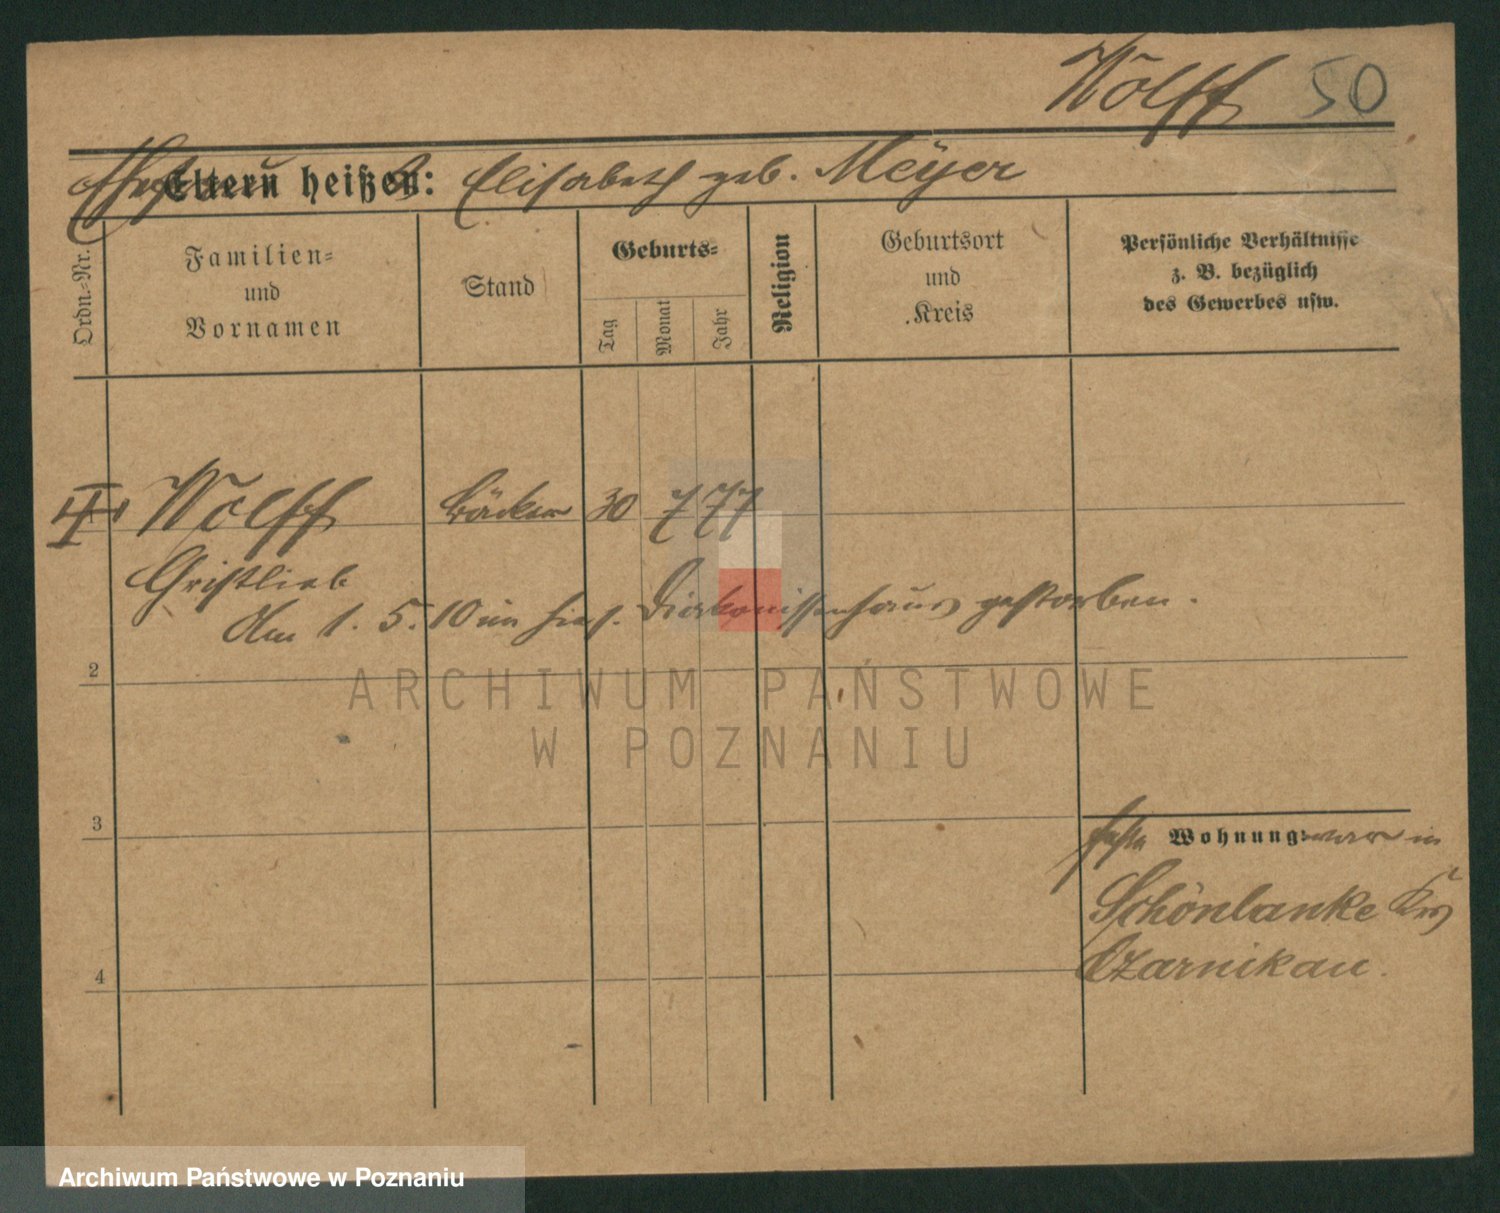 Wolff 50
Eltern heißen: Elisabeth geb. Meyer
Ordn.-Nr.
Familien-
und
Vornamen
Stand
Geburts-
Tag
Monat
Jahr
Religion
Geburtsort
und
Kreis
Persönliche Verhältnisse
z. B. bezüglich
des Gewerbes usw.
1 Wolff Bäcker 30 7 77
Christlieb
Am 1. 5. 10 im hies. Diakonissenhaus gestorben.
2
ARCHIWUM PAŃSTWOWE
W POZNANIU
3
feste Wohnung: war in
Schönlanke Krs
Czarnikau.
4
Archiwum Państwowe w Poznaniu